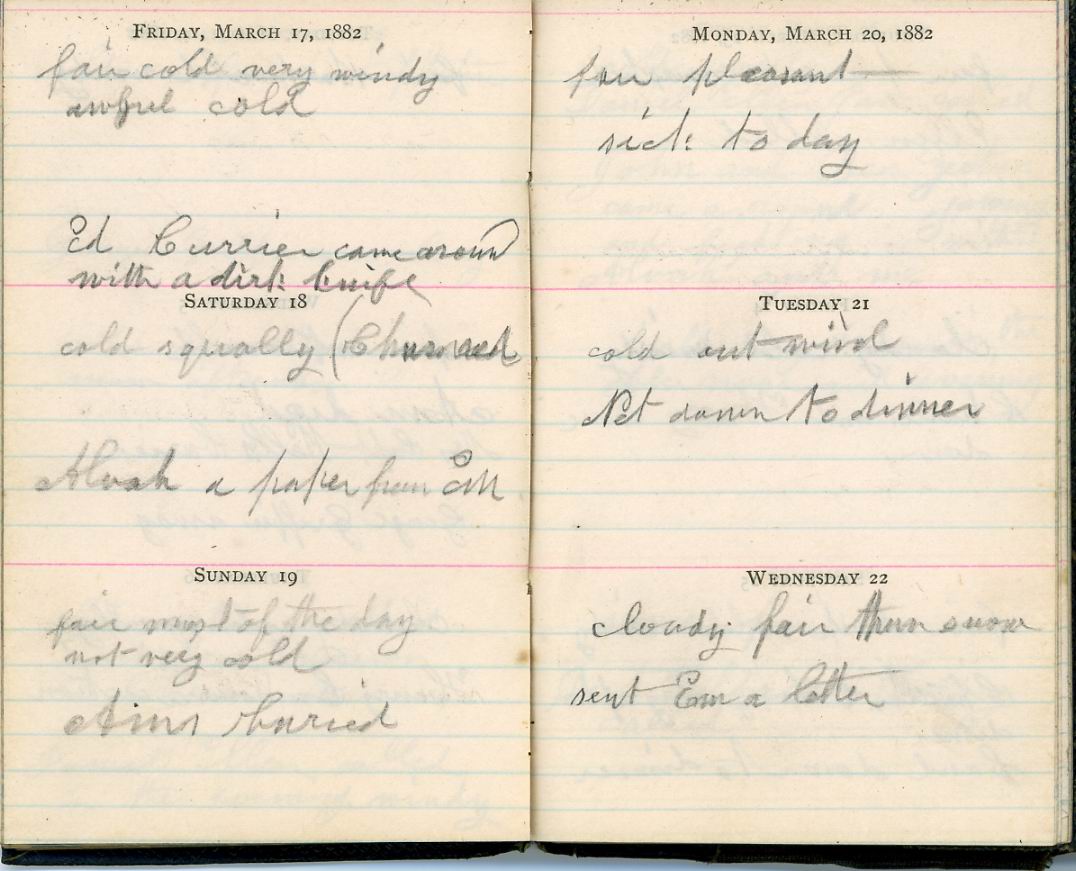 FRIDAY, MARCH 17, 1882
fair cold very windy
awful cold
Ed Currier came around
with a dirk knife
SATURDAY 18
cold squally (Churned
Alvah a paper from Em
SUNDAY 19
fair most of the day
not very cold
buried
MONDAY, MARCH 20, 1882
fair pleasant
sick to day
TUESDAY 21
cold out wind
Net down to dinner
WEDNESDAY 22
cloudy fair then snow
sent Em a letter